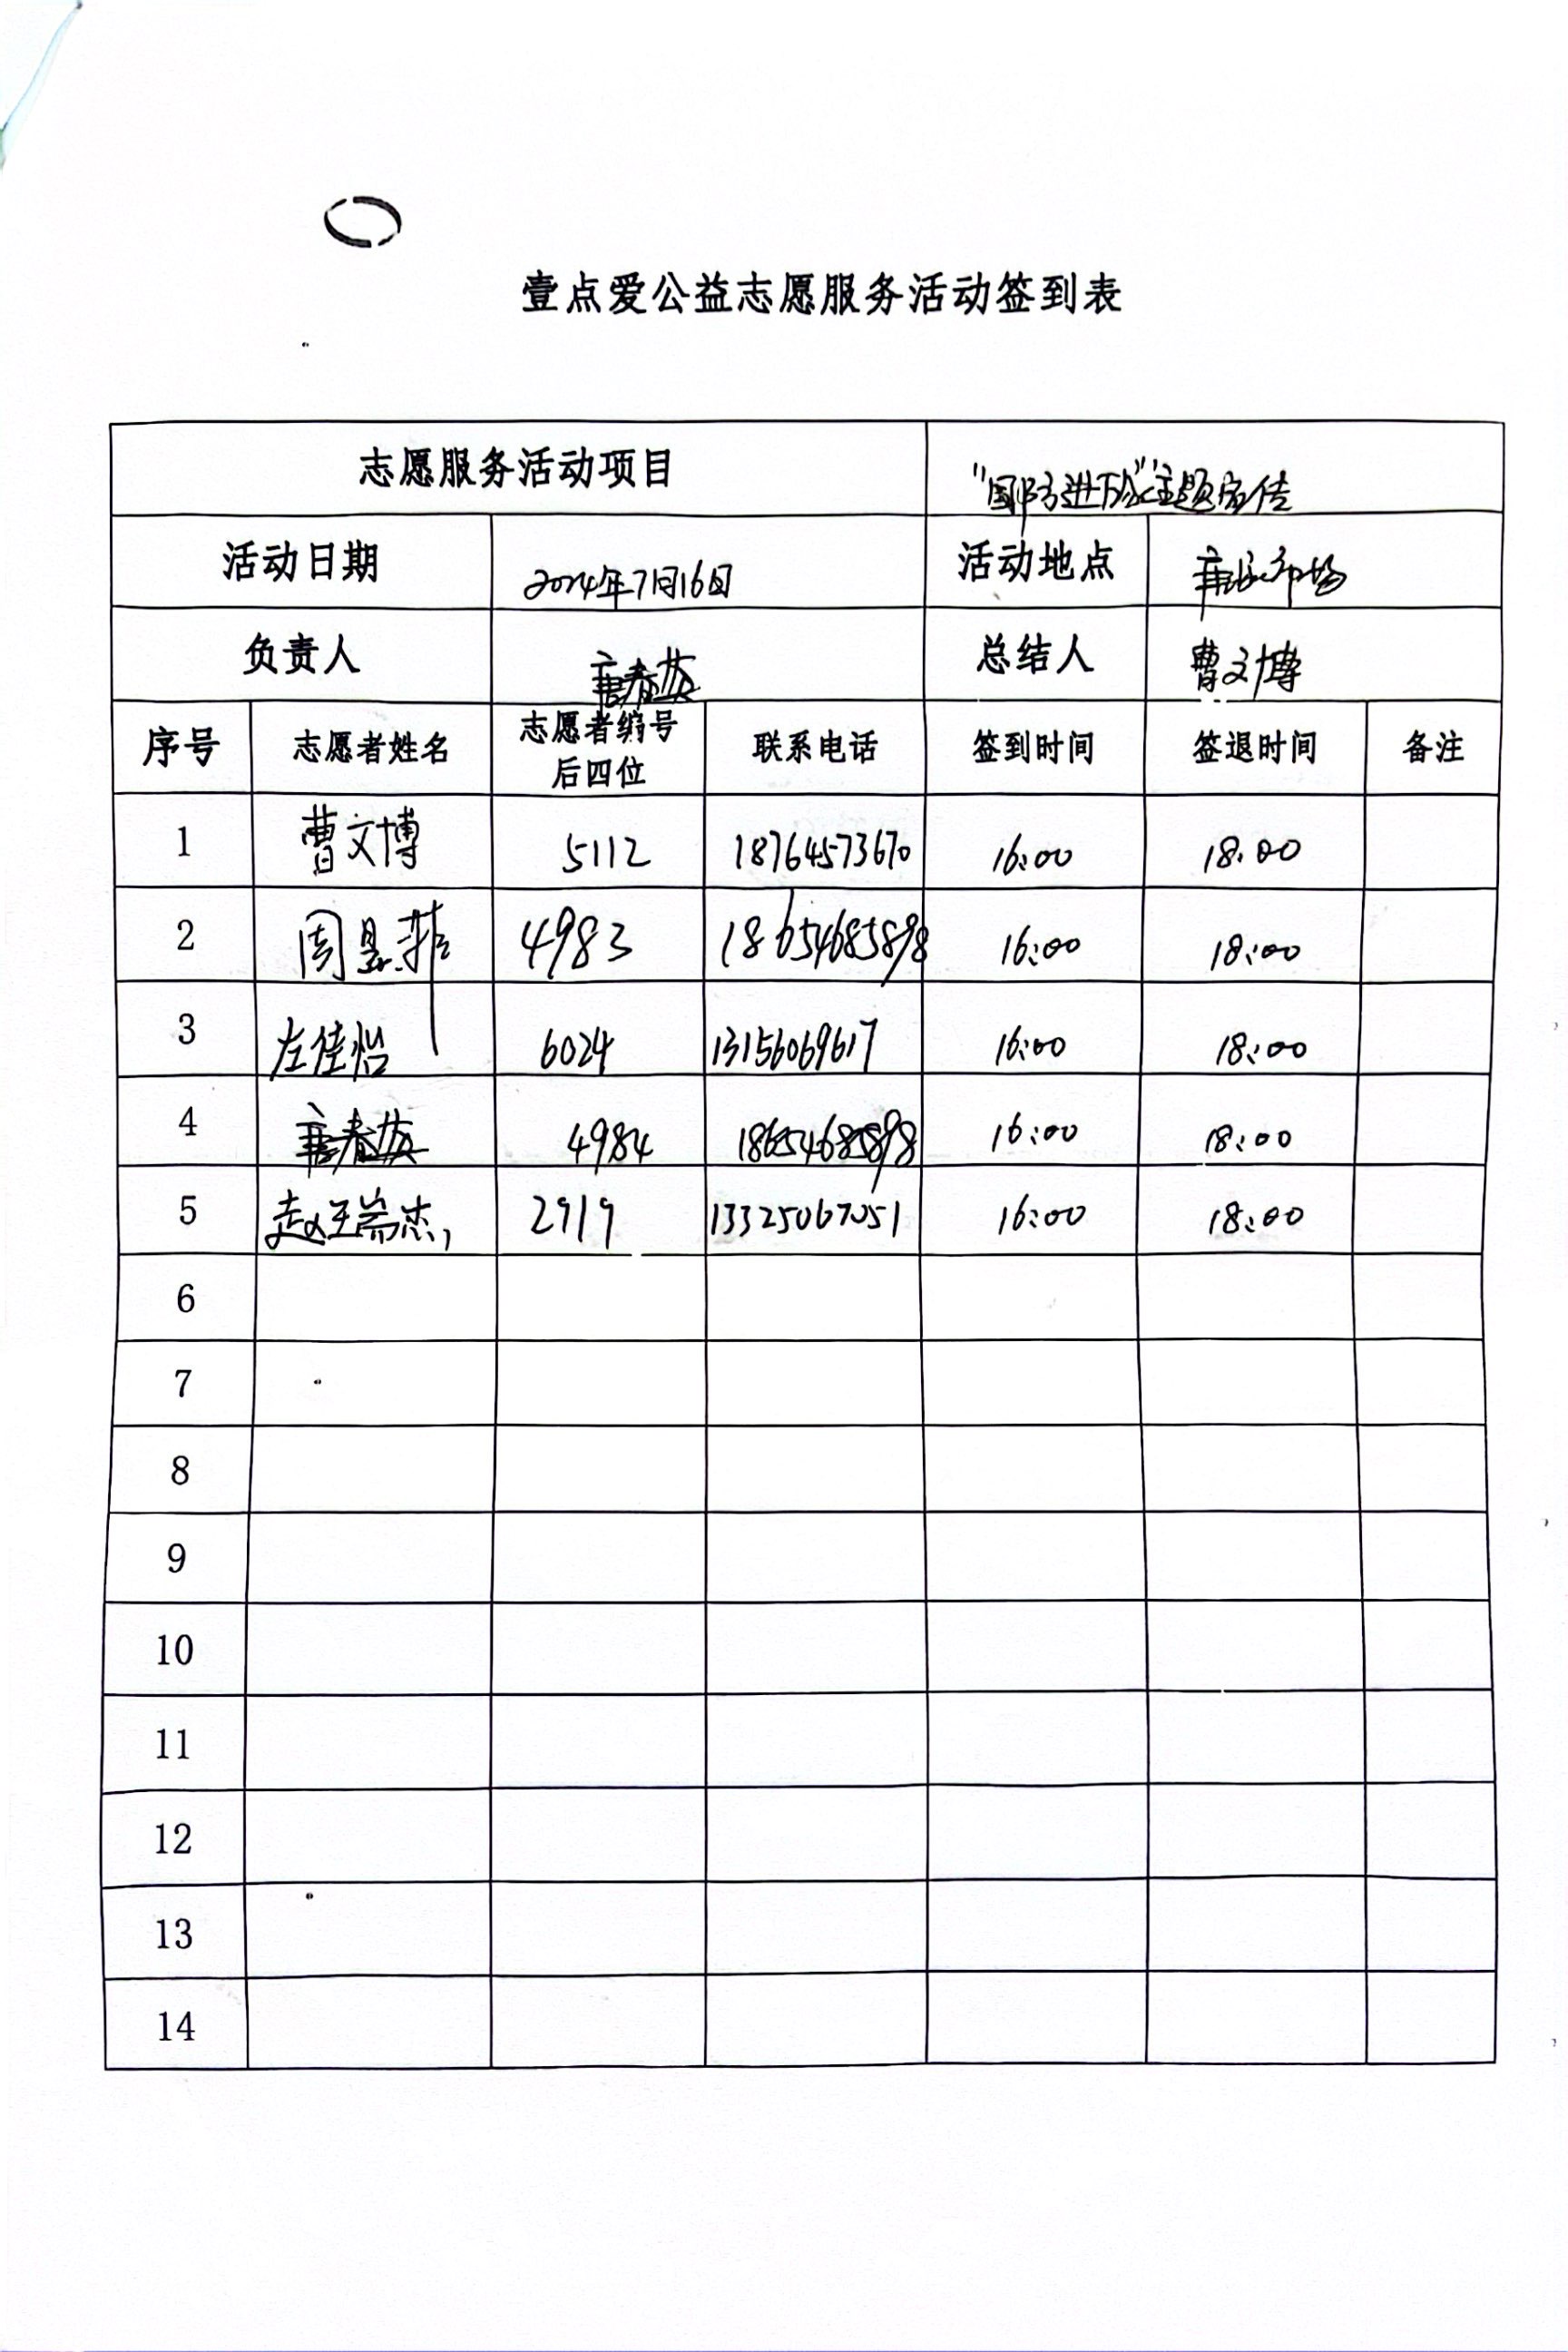 壹点爱公益志愿服务活动签到表
志愿服务活动项目 "国防进万家"主题宣传
活动日期 2024年7月16日 活动地点
负责人 唐春英 总结人 曹文博
序号 志愿者姓名 志愿者编号后四位 联系电话 签到时间 签退时间 备注
1 曹文博 5112 18764573670 16:00 18:00
2 周昱菲 4983 18654685898 16:00 18:00
3 左佳怡 6024 13156069617 16:00 18:00
4 唐春英 4984 18654685898 16:00 18:00
5 赵王瑞杰 2919 13325067051 16:00 18:00
6
7
8
9
10
11
12
13
14